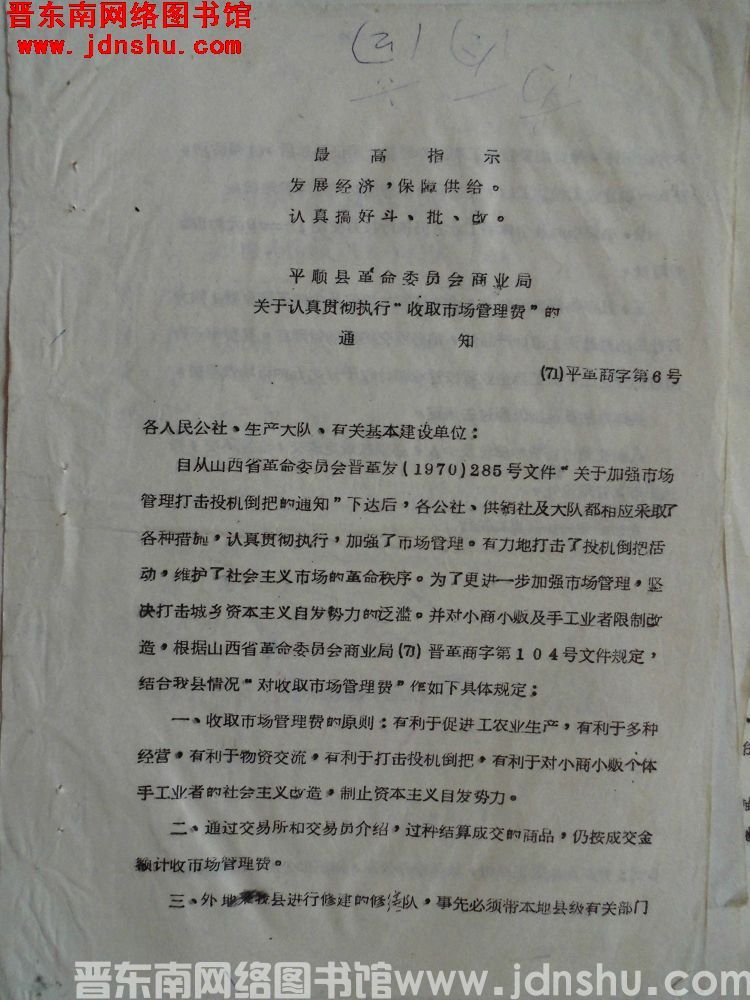 晋东南网络图书馆
www.jdnshu.com
最高指示
发展经济，保障供给。
认真搞好斗、批、改。
平顺县革命委员会商业局
关于认真贯彻执行“收取市场管理费”的
通知
(71)平革商字第6号
各人民公社、生产大队、有关基本建设单位：
自从山西省革命委员会晋革发(1970)285号文件“关于加强市场
管理打击投机倒把的通知”下达后，各公社、供销社及大队都相应采取了
各种措施，认真贯彻执行，加强了市场管理。有力地打击了投机倒把活
动，维护了社会主义市场的革命秩序。为了更进一步加强市场管理，坚
决打击城乡资本主义自发势力的泛滥。并对小商小贩及手工业者限制改
造，根据山西省革命委员会商业局(71)晋革商字第104号文件规定，
结合我县情况“对收取市场管理费”作如下具体规定：
一、收取市场管理费的原则：有利于促进工农业生产，有利于多种
经营，有利于物资交流，有利于打击投机倒把，有利于对小商小贩个体
手工业者的社会主义改造，制止资本主义自发势力。
二、通过交易所和交易员介绍，过秤结算成交的商品，仍按成交金
额计收市场管理费。
三、外地来我县进行修建的修缮队，事先必须带本地县级有关部门
晋东南网络图书馆www.jdnshu.com